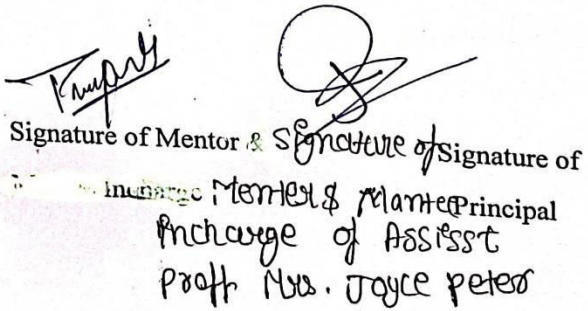 Signature of Mentor & Signature of Signature of
Incharge Menter & Mantee Principal
Incharge of Assisst
Proff Mrs. Joyce Peter